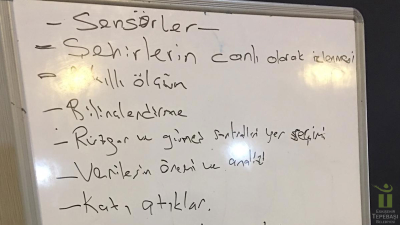 - Sensörler -
- Şehirlerin canlı olarak izlenmesi
- Akıllı ölçüm
- Bilinçlendirme
- Rüzgar ve güneş santralleri yer seçimi
- Verilerin önemi ve analizi
- Katı atıklar.
TEPEBAŞI